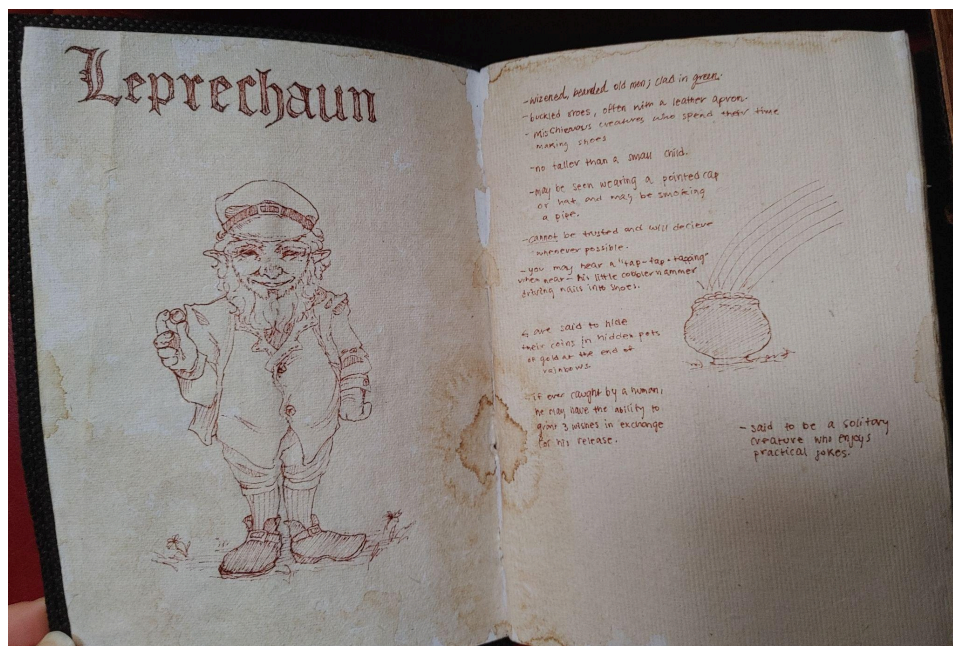 Leprechaun
- wizened, bearded old men; clad in green.
- buckled shoes, often with a leather apron.
- mischievous creatures who spend their time
making shoes
- no taller than a small child.
- may be seen wearing a pointed cap
or hat, and may be smoking
a pipe.
- cannot be trusted and will decieve
whenever possible.
- you may hear a "tap-tap-tapping"
when near - his little cobbler hammer
driving nails into shoes.
are said to hide
their coins in hidden pots
of gold at the end of
rainbows.
if ever caught by a human,
he may have the ability to
grant 3 wishes in exchange
for his release.
- said to be a solitary
creature who enjoys
practical jokes.